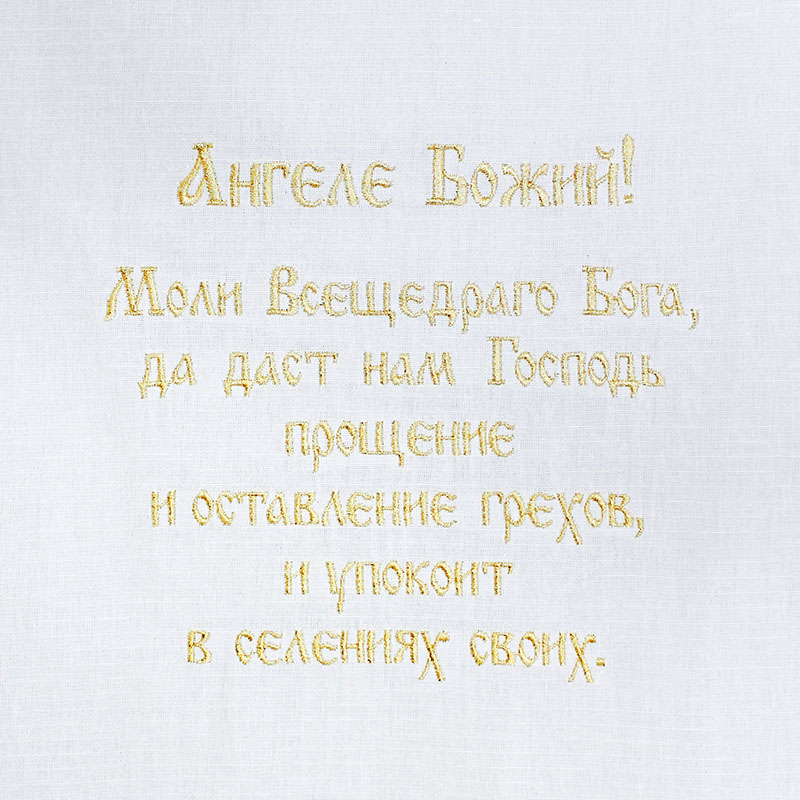 Ангеле Божий!
Моли Всещедраго Бога,
да даст нам Господь
прощение
и оставление грехов,
и упокоит
в селениях своих.